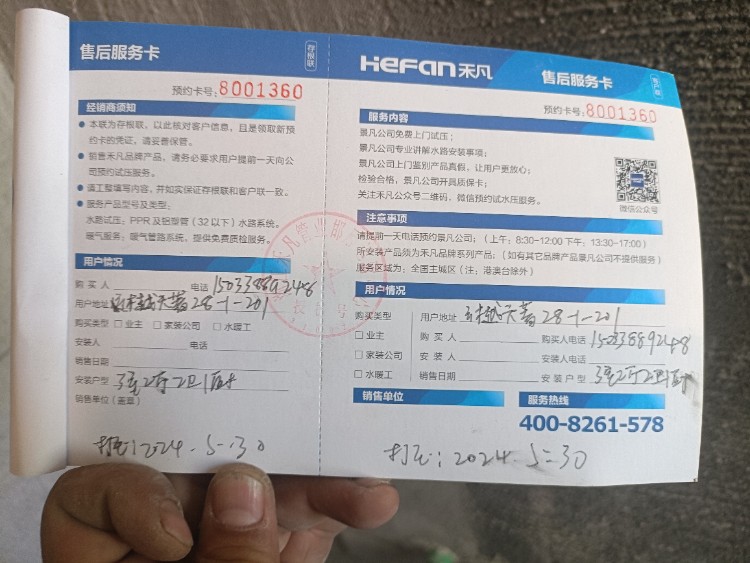 售后服务卡
存根联
预约卡号:8001360
经销商须知
● 本联为存根联，以此核对客户信息，且是领取新预
约卡的凭证，请妥善保管。
● 销售禾凡品牌产品，请务必要求用户提前一天向公
司预约试压服务。
● 请工整填写内容，并如实保证存根联和客户联一致。
● 服务产品型号及类型:
水路试压: PPR及铝塑管（32以下）水路系统。
暖气服务: 暖气管路系统，提供免费质检服务。
用户情况
购买人 电话 15033889248
用户地址 天著28-1-201
购买类型 □ 业主 □ 家装公司 □ 水暖工
安装人 电话
销售日期
安装户型 3室2厅2卫1厨
销售单位（盖章）
打压:2024.5.30
HeFan 禾凡
售后服务卡
客户联
预约卡号:8001360
服务内容
景凡公司免费上门试压;
景凡公司专业讲解水路安装事项;
景凡公司上门鉴别产品真假，让用户更放心;
检验合格，景凡公司开具质保卡;
关注禾凡公众号二维码，微信预约试水压服务。
微信公众号
注意事项
请提前一天电话预约景凡公司;（上午: 8:30-12:00 下午: 13:30-17:00）
所安装产品须为禾凡品牌系列产品;（如有其它品牌产品景凡公司不提供服务）
服务区域为: 全国主城区（注: 港澳台除外）
用户情况
购买类型 用户地址 天著28-1-201
□ 业主 购买人 购买人电话 15033889248
□ 家装公司 安装人 安装人电话
□ 水暖工 销售日期 安装户型 3室2厅2卫1厨
销售单位
服务热线
400-8261-578
打压:2024.5.30